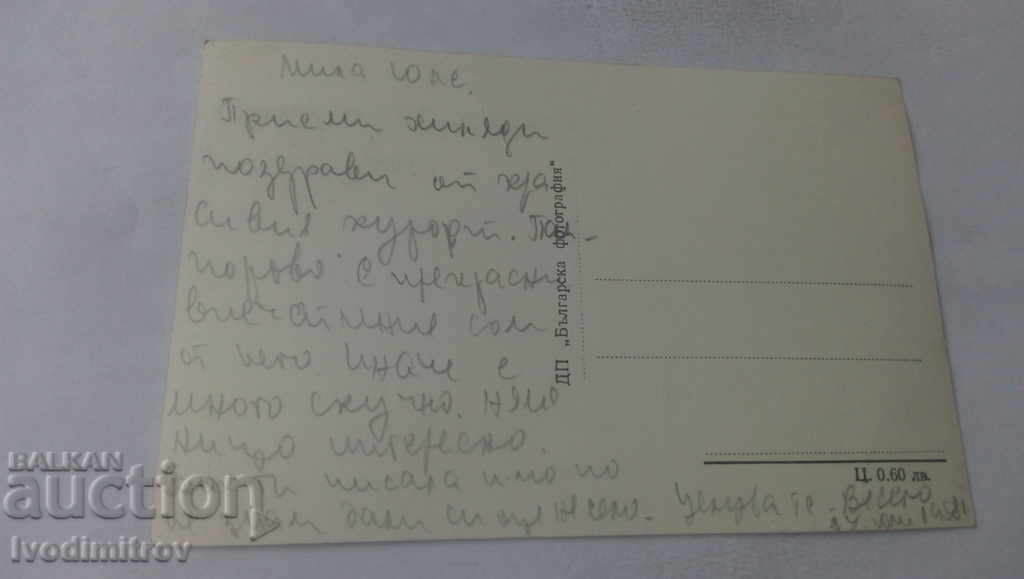 Мила Юле,
Приеми хиляди
поздрави от кра
сивия курорт. Пам-
порово с прекрасни
впечатления съм
от него. Иначе е
много скучно. няма
нищо интересно.
писала
дали си
Целува те
27 юни 1981
ДП „Българска фотография“
Ц. 0.60 лв.
BALKAN
auction
Ivodimitrov